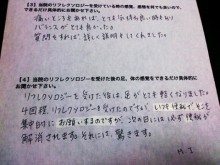 【3】当院のリフレクソロジーを受けている時の感覚、感想を何でも良いので、
できるだけ具体的にお聞かせ下さい。
痛いところもあれば、とても気持ち良い時もあり
バランスがとても良かった。
質問をすれば、詳しく説明をしてくれました。
【4】当院のリフレクソロジーを受けた後の足、体の感覚をできるだけ具体的に
お聞かせ下さい。
リフレクソロジーを受けた後は、足がとても軽くなりました。
4回程、リフレクソロジーを受けたのですが、いつも便秘のところを
集中的にお願いするのですが、次の日には必ず便秘が
解消されます。それには、驚きます。